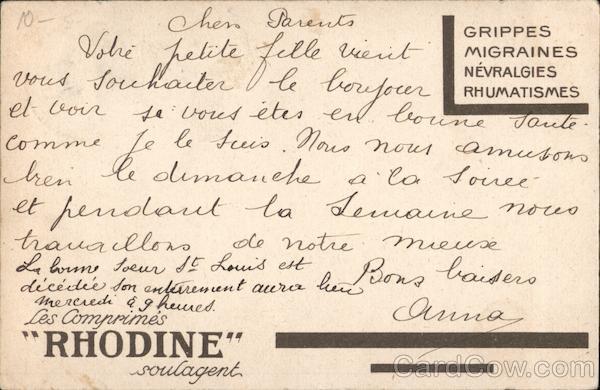 10-
Chers Parents
GRIPPES
MIGRAINES
NÉVRALGIES
RHUMATISMES
Votre petite fille vient
vous souhaiter le bonjour
et voir si vous êtes en bonne santé
comme je le suis. Nous nous amusons
bien le dimanche à la soirée
et pendant la semaine nous
travaillons de notre mieux
La bonne soeur St Louis est
décédée son enterrement aura lieu
mercredi à 9 heures.
Bons baisers
Anna
Les Comprimés
"RHODINE"
soulagent
CardCow.com